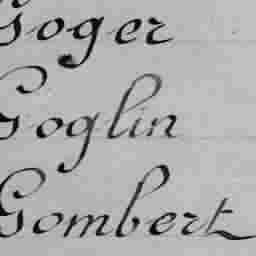 Goger
Goglin
Gombert